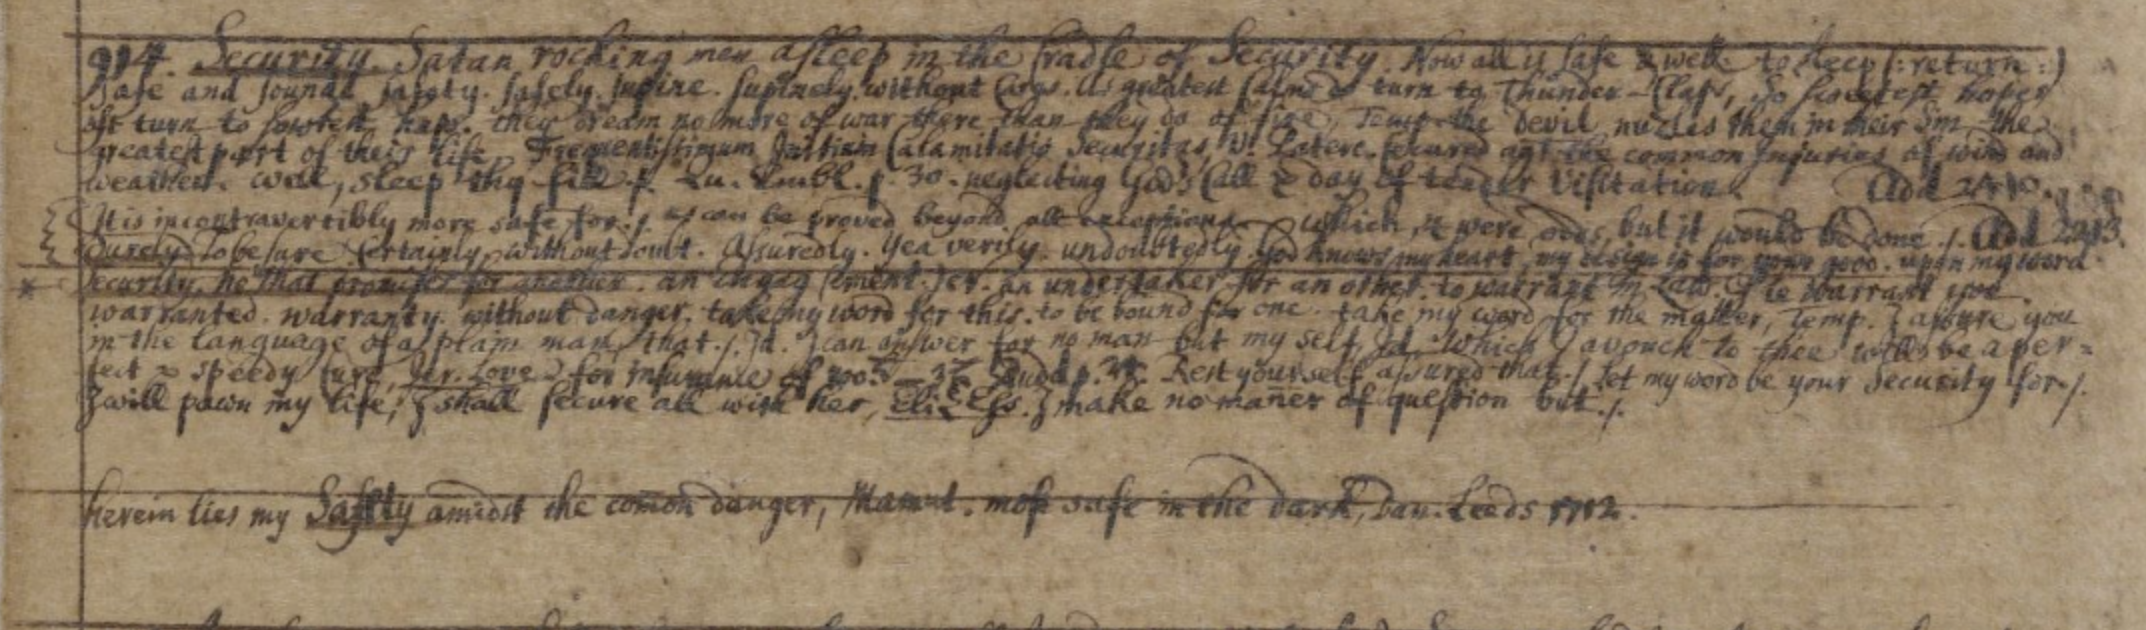 914. Security. Satan rocking men asleep in the Cradle of Security. Now all is safe & well to sleep (: return :)
safe and sound safety. safely. supine. supinely. without Care. As greatest Calms turn to Thunder-Claps, So hopes
oft turn to haps. they dream no more of war there than they do of fire, Temp. the Devil nuzles them in their Sin the
greatest part of their life, Frequentissimum Initium Calamitatis Securitas, V. Paterc. Secured agt the common Injuries of wind and
weather. well, sleep thy fill. Qu. Embl. p. 30. neglecting God's Call & day of tender Visitation. Add 2410.
It is incontravertibly more safe for ./. can be proved beyond all exceptions. which, it were odds but it would be done ./. Add 2413.
Surely to be sure Certainly, without doubt. Assuredly. Yea verily. undoubtedly. God knows my heart, my design is for your good. upon my word
Security. he that promises for another. an engagement. Jer. an undertaker for an other. to warrant in Law. I'le warrant you.
warranted. warranty. without danger. take my word for this. to be bound for one. take my word for the matter, Temp. I assure you
in the language of a plain man, that ./. Id. I can answer for no man but my self, Id. which I avouch to thee will be a per=
fect & speedy Cure, for Insurance of Rest your self assured that ./. let my word be your Security for ./.
I will pawn my life, I shall secure all with her, I make no maner of question but ./.
herein lies my Safety amidst the comon danger, most safe in the dark, Dan. Leeds 1712.